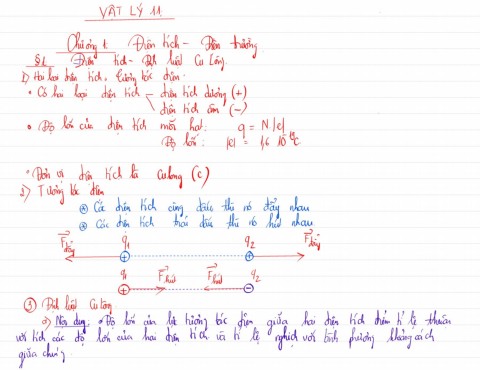 VẬT LÝ 11
Chương 1 Điện tích - Điện trường
§1 Điện tích - Định luật Cu lông.
1) Hai loại điện tích, tương tác điện.
• Có hai loại điện tích điện tích dương (+)
điện tích âm (-)
• Độ lớn của điện tích mỗi hạt: q = N|e|
Độ lớn: |e| = 1,6 10⁻¹⁹C
• Đơn vị điện tích là culong (C)
2) Tương tác điện
⊛ Các điện tích cùng dấu thì nó đẩy nhau
⊛ Các điện tích trái dấu thì nó hút nhau
F đẩy q1 q2 F đẩy
+ +
q1 F hút F hút q2
+ -
③ Định luật Culong
a) Nội dung: Độ lớn của lực tương tác điện giữa hai điện tích điểm tỉ lệ thuận
với tích các độ lớn của hai điện tích và tỉ lệ nghịch với bình phương khoảng cách
giữa chúng.